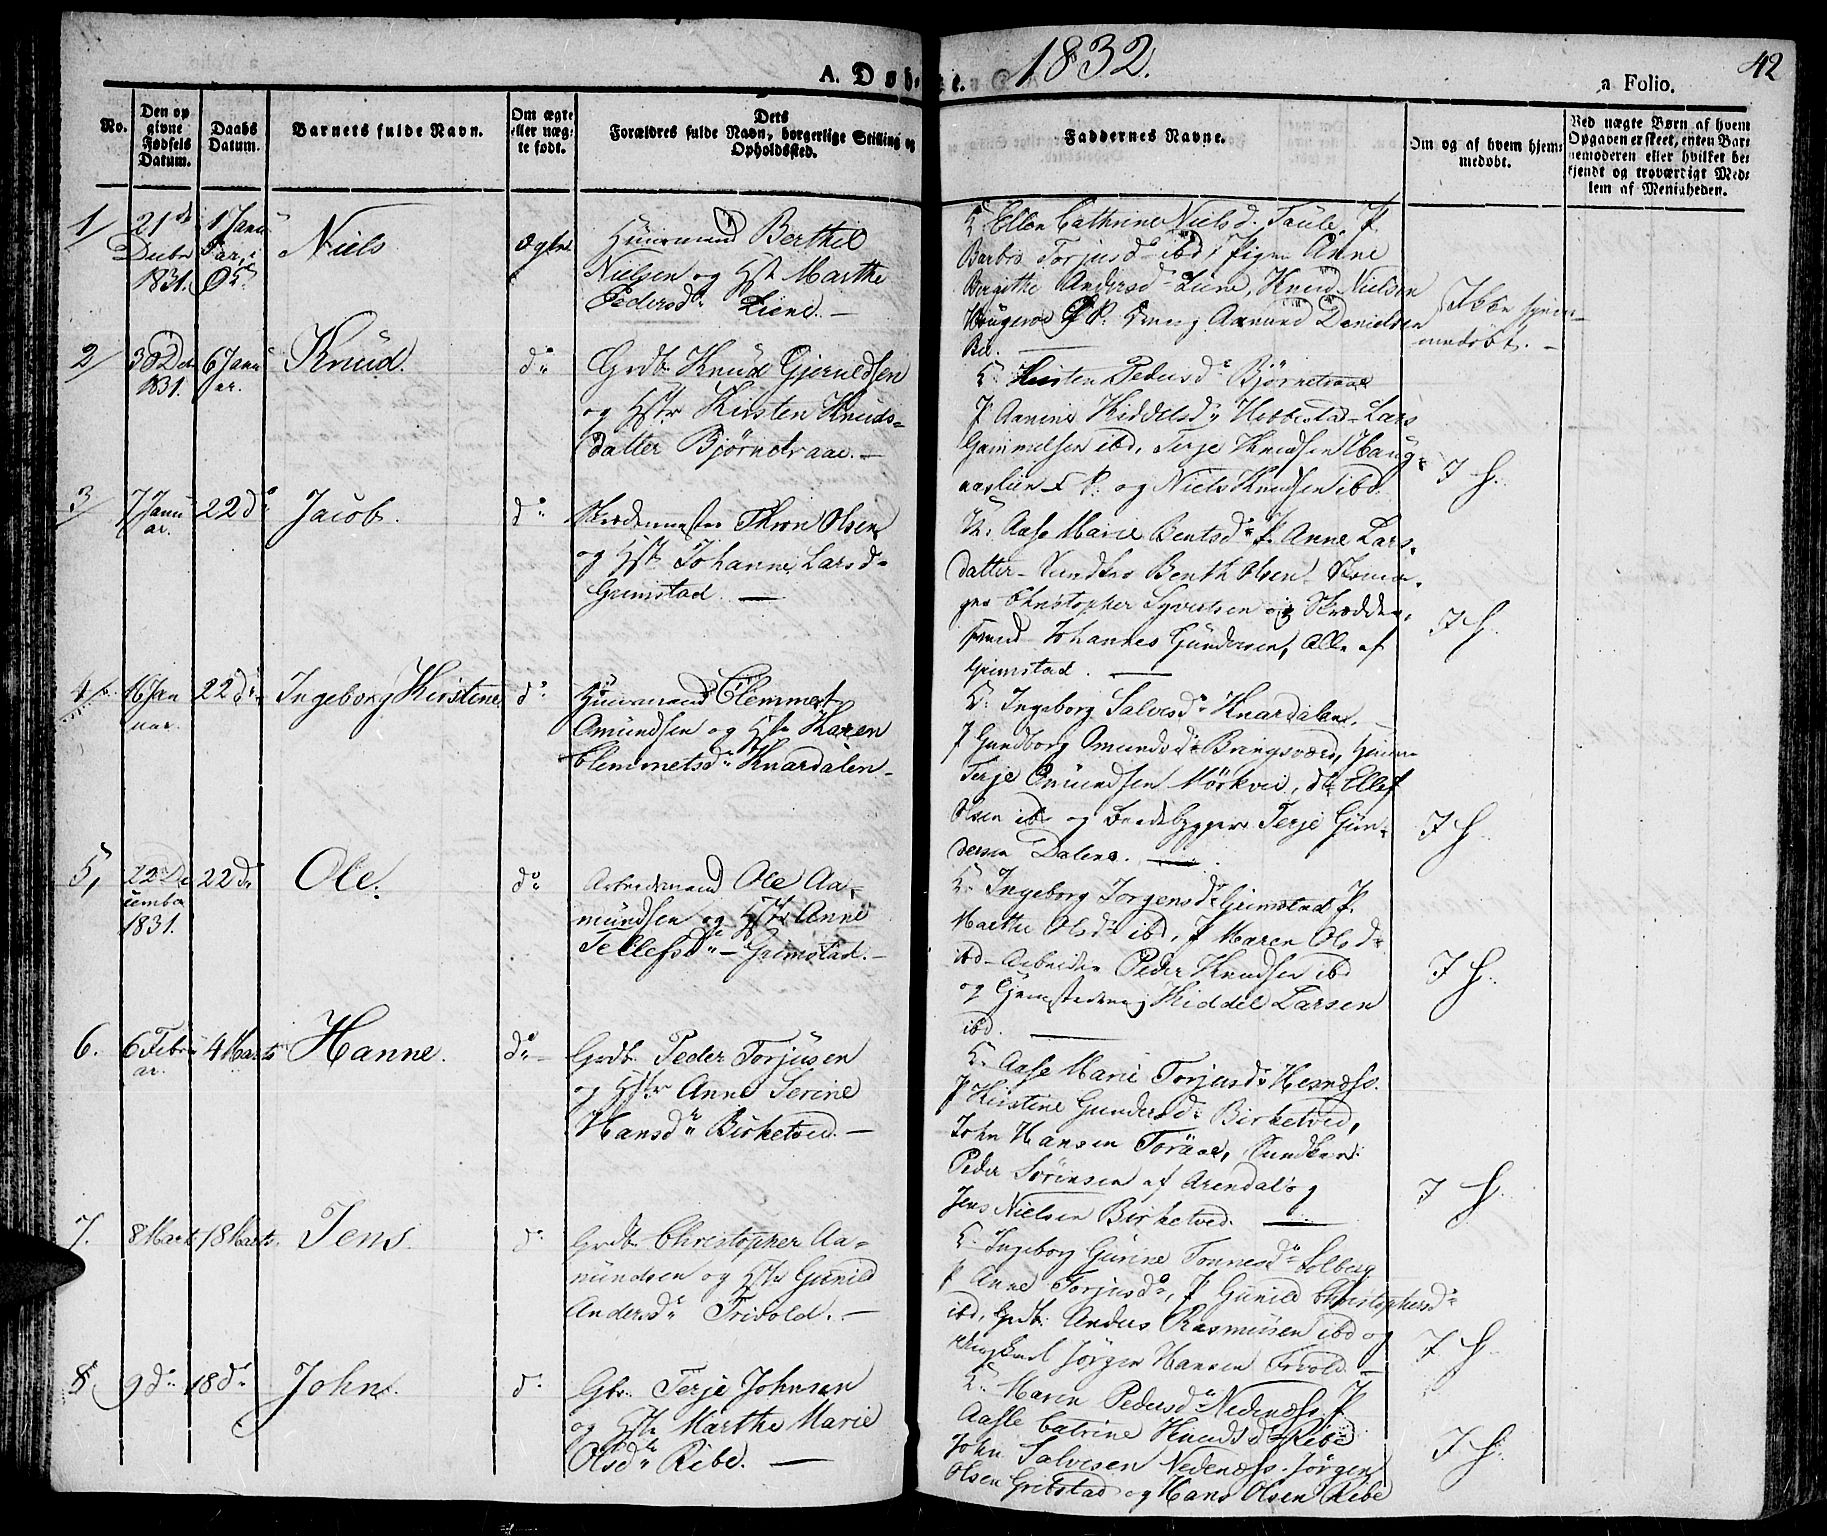 A. Døbte.
1832.
42
a Folio.
No.
Den op
givne
Fødsels
Datum.
Daabs
Datum.
Barnets fulde Navn.
Om ægte
eller uæg-
te født.
Dets
Forældres fulde Navn, borgerlige Stilling og
Opholdssted.
Faddernes Navne.
Om og af hvem hjem-
medøbt.
Ved uægte Børn af hvem
Opgaven er skeet, enten Bar-
nemoderen eller hvilket be-
kjendt og troværdigt Med-
lem af Menigheden.
1/
21de
Decbr
1831.
1 Janu
Niels
ægte
Huusmand Berthel
Nielsen og Hst Marthe
Pedersdr Liene. —
K. Ellen Cathrine Nielsd. P.
Barbro Torjusdr ibd, Pigen Anne
Birgithe Andersdr Liene, Knud Nielsen
Aamund Danielsen
Ikke hjem-
medøbt. —
2/
30 De
1831.
6 Janu
ar.
Knud.
do
Grdb. Knud Gjeruldsen
og Hstr Kirsten Knuds-
datter Bjørnetraae. —
K. Kirsten Pedersdr Bjørnetraae
P. Kiddelsdr Hebbestad Lars
Gummelsen ibd, Terje Knudsen Haug-
aaslien P. og Niels Knudsen ibd.
I H.
3/
7 Janu
ar.
22 do
Jacob.
do
Skrædermester Thron Olsen
og Hstr Johanne Larsd
Grimstad. —
K. Aase Marie Bentsdr P. Anne Lars-
datter Benth Olsen Skoma-
ger Christopher Syvertsen og Skrædder-
svend Johannes Gundersen, Alle af
Grimstad. —
I H.
4
16 Jan
uar.
22 do
Ingeborg Kirstine
do
Huusmand Clemmet
Omundsen og Hstr Karen
Clemmetsdr Knardalen
K. Ingeborg Salvesdr Knardalen. —
P Gundborg Omundsdr Bringsværd,
Terje Omundsen Mörkvei, do Ellef
Olsen ibd og Baadebygger Terje Gun-
dersen Dalene. —
I H.
5,
22 De
cember
1831.
22 do
Ole.
do
Arbeidsmand Ole Aa-
mundsen og Hstr Anne
Tellefsdr — Grimstad. —
K. Ingeborg Jorgensdr Grimstad P.
Marthe Olsdr ibd, P Maren Olsd
ibd — Arbeider Peder Knudsen ibd
og Kiddel Larsen
ibd. —
I H.
6.
6 Febru
ar.
4 Marts
Hanne.
do
Grdb. Peder Torjusen
og Hstr Anne Serine
Hansdr Birketved. —
K. Aase Marie Torjusdr Hesnæss.
P Kirstine Gundersdr Birketved,
John Hansen Toraae,
Peder Sörensen af Arendal og
Jens Nielsen Birketved. —
I H.
7.
8 Marts
18 Marts
Jens.
do
Grdb. Christopher Aa-
mundsen og Hstr Gunild
Andersdr Frivold. —
K. Ingeborg Gurine Tonnesdr Solberg
P Anne Torjusdr, P Gunild Christophersdr
ibd, Grdb. Anders Rasmusen ibd og
Ungkarl Jörgen Hansen Frivold —
I H.
8
9 do
18 do
John.
do
Gbr. Terje Johnsen
og Hstr Marthe Marie
Olsdr Ribe. —
K. Maren Pedersdr Nedenæss. P
Aasle Catrine Knudsdr Ribe
John Salvesen Nedenæss. Jörgen
Olsen Gribstad og Hans Olsen Ribe
I H.